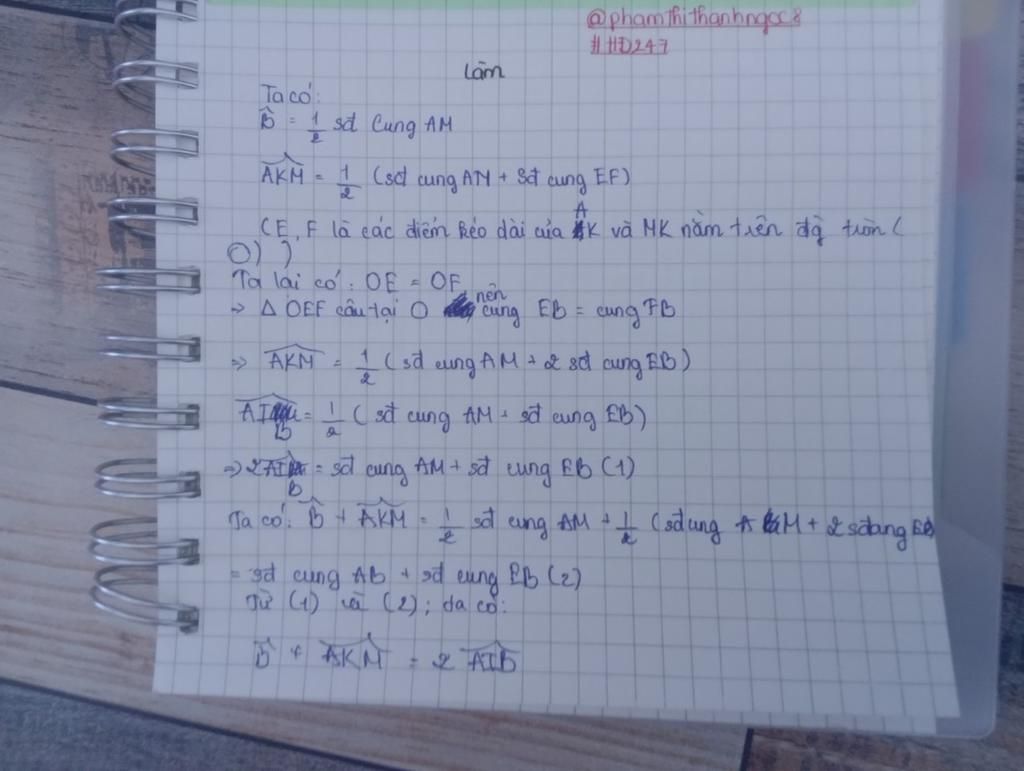 @phamthithanhngoc8
#HD247
Làm
Ta có:
B̂ = 1/2 sđ Cung AM
AKM = 1/2 (sđ cung AM + sđ cung EF)
(E, F là các điểm kéo dài của AK và MK nằm trên đg tròn (
O) )
Ta lại có: OE = OF
→ Δ OEF cân tại O nên cung EB = cung FB
⇒ AKM = 1/2 (sđ cung AM + 2 sđ cung EB)
AIB = 1/2 (sđ cung AM + sđ cung EB)
⇒ 2AIB = sđ cung AM + sđ cung EB (1)
Ta có: B̂ + AKM = 1/2 sđ cung AM + 1/2 (sđ cung AM + 2 sđ cung EB
= sđ cung AB + sđ cung EB (2)
Từ (1) và (2); da có:
B̂ + AKM = 2 AIB